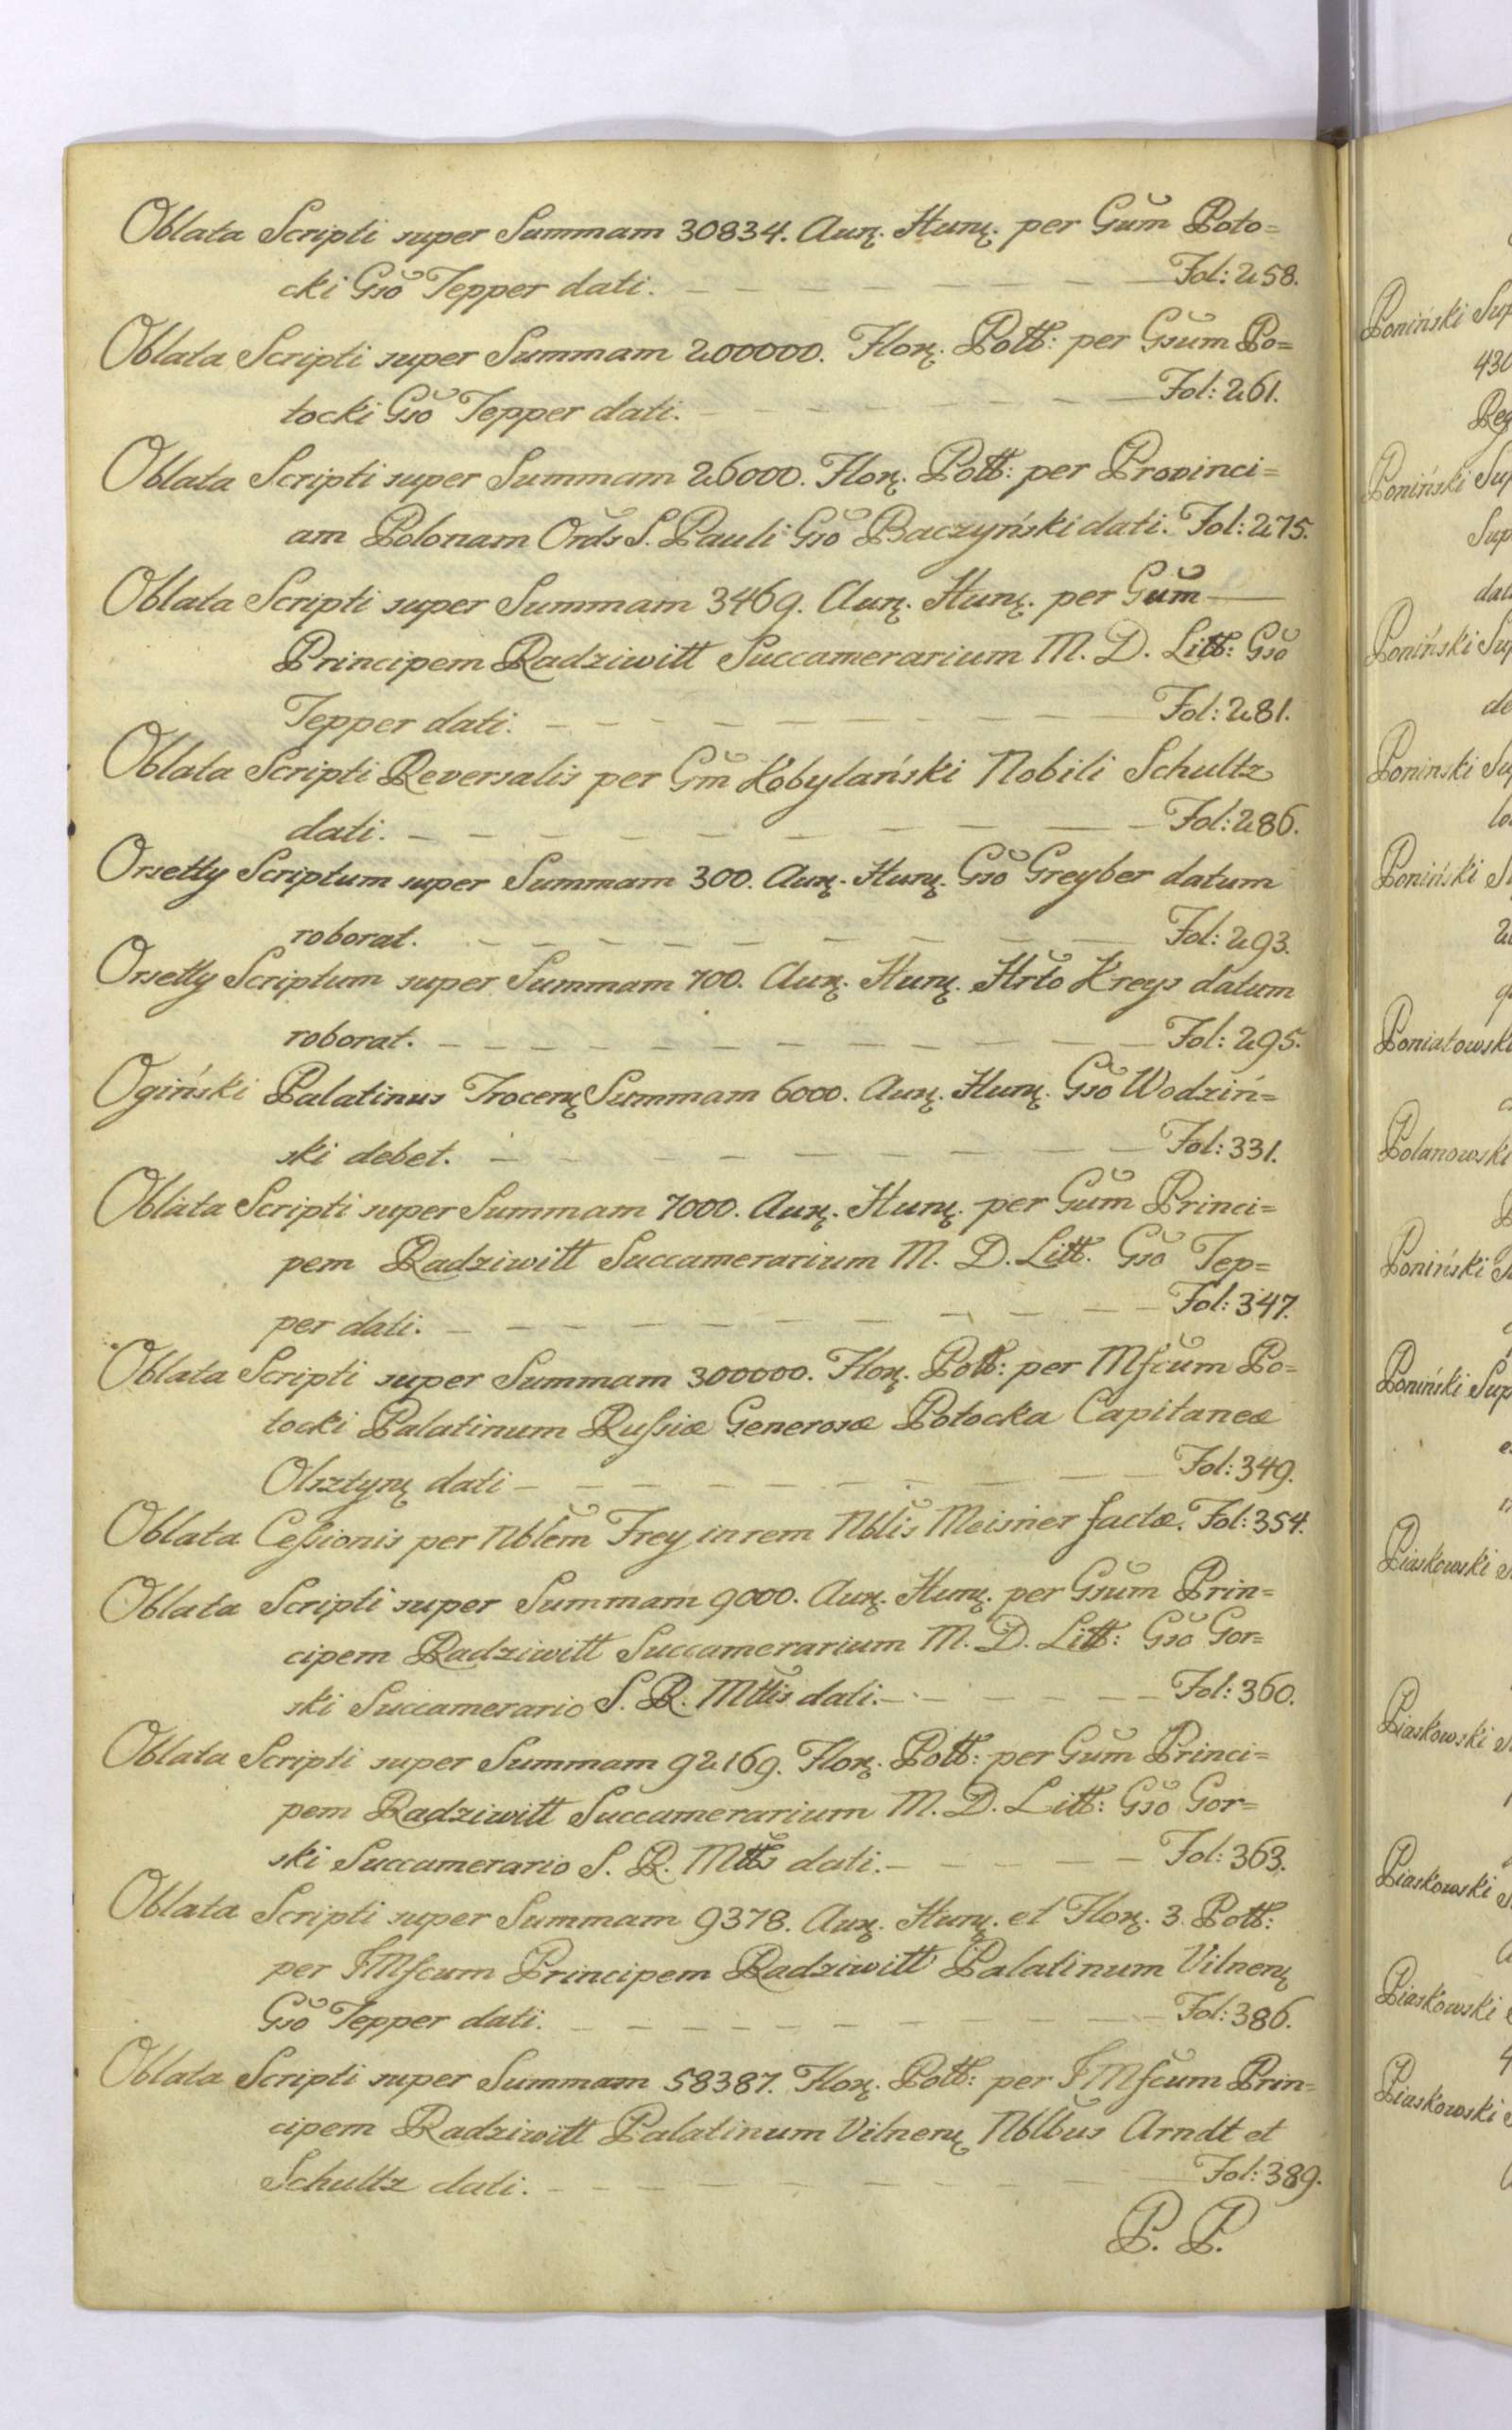 Oblata Scripti super Summam 30834. Aurꝝ. Hunꝝ. per Gum Poto=
cki Gso Tepper dati. Fol: 258.
Oblata Scripti super Summam 200000. Florꝝ. Poll: per Gsum Po=
tocki Gso Tepper dati. Fol: 261.
Oblata Scripti super Summam 26000. Florꝝ. Poll: per Provinci=
am Polonam Ords S. Pauli Gso Baczyński dati. Fol: 275.
Oblata Scripti super Summam 3469. Aurꝝ. Hunꝝ. per Gum
Principem Radziwiłł Succamerarium M. D. Litt: Gso
Tepper dati. Fol: 281.
Oblata Scripti Reversalis per Gm Kobylański Nobili Schultz
dati. Fol: 286.
Orsetty Scriptum super Summam 300. Aurꝝ. Hunꝝ. Gso Greyber datum
roborat. Fol: 293.
Orsetty Scriptum super Summam 700. Aurꝝ. Hunꝝ. Hrto Kreys datum
roborat. Fol: 295.
Ogiński Palatinus Trocenꝝ Summam 6000. Aurꝝ. Hunꝝ. Gso Wodziń=
ski debet. Fol: 331.
Oblata Scripti super Summam 7000. Aurꝝ. Hunꝝ. per Gum Princi=
pem Radziwiłł Succamerarium M. D. Litt. Gso Tep=
per dati. Fol: 347.
Oblata Scripti super Summam 300000. Florꝝ. Poll: per Mfcum Po=
tocki Palatinum Russiæ Generosæ Potocka Capitaneæ
Olsztynꝝ dati Fol: 349.
Oblata Cessionis per Nblem Frey in rem Nblis Meisner factæ. Fol: 354.
Oblata Scripti super Summam 9000. Aurꝝ. Hunꝝ. per Gsum Prin=
cipem Radziwiłł Succamerarium M. D. Litt: Gso Gor=
ski Succamerario S. R. Mttis dati. Fol: 360.
Oblata Scripti super Summam 92169. Florꝝ. Poll: per Gum Princi=
pem Radziwiłł Succamerarium M. D. Litt: Gso Gor=
ski Succamerario S. R. Mtts dati. Fol: 363.
Oblata Scripti super Summam 9378. Aurꝝ. Hunꝝ. et Florꝝ. 3. Poll:
per IMfcum Principem Radziwiłł Palatinum Vilnenꝝ
Gso Tepper dati. Fol: 386.
Oblata Scripti super Summam 58387. Florꝝ. Poll: per IMfcum Prin=
cipem Radziwiłł Palatinum Vilnenꝝ Nblbus Arndt et
Schultz dati. Fol: 389.
P. P.
Poniński
430
Poniński
Poniński
Poninski
Poniński
Poniatowski
Polanowski
Poniński
Poniński
Piaskowski
Piaskowski
Piaskowski
Piaskowski
Piaskowski